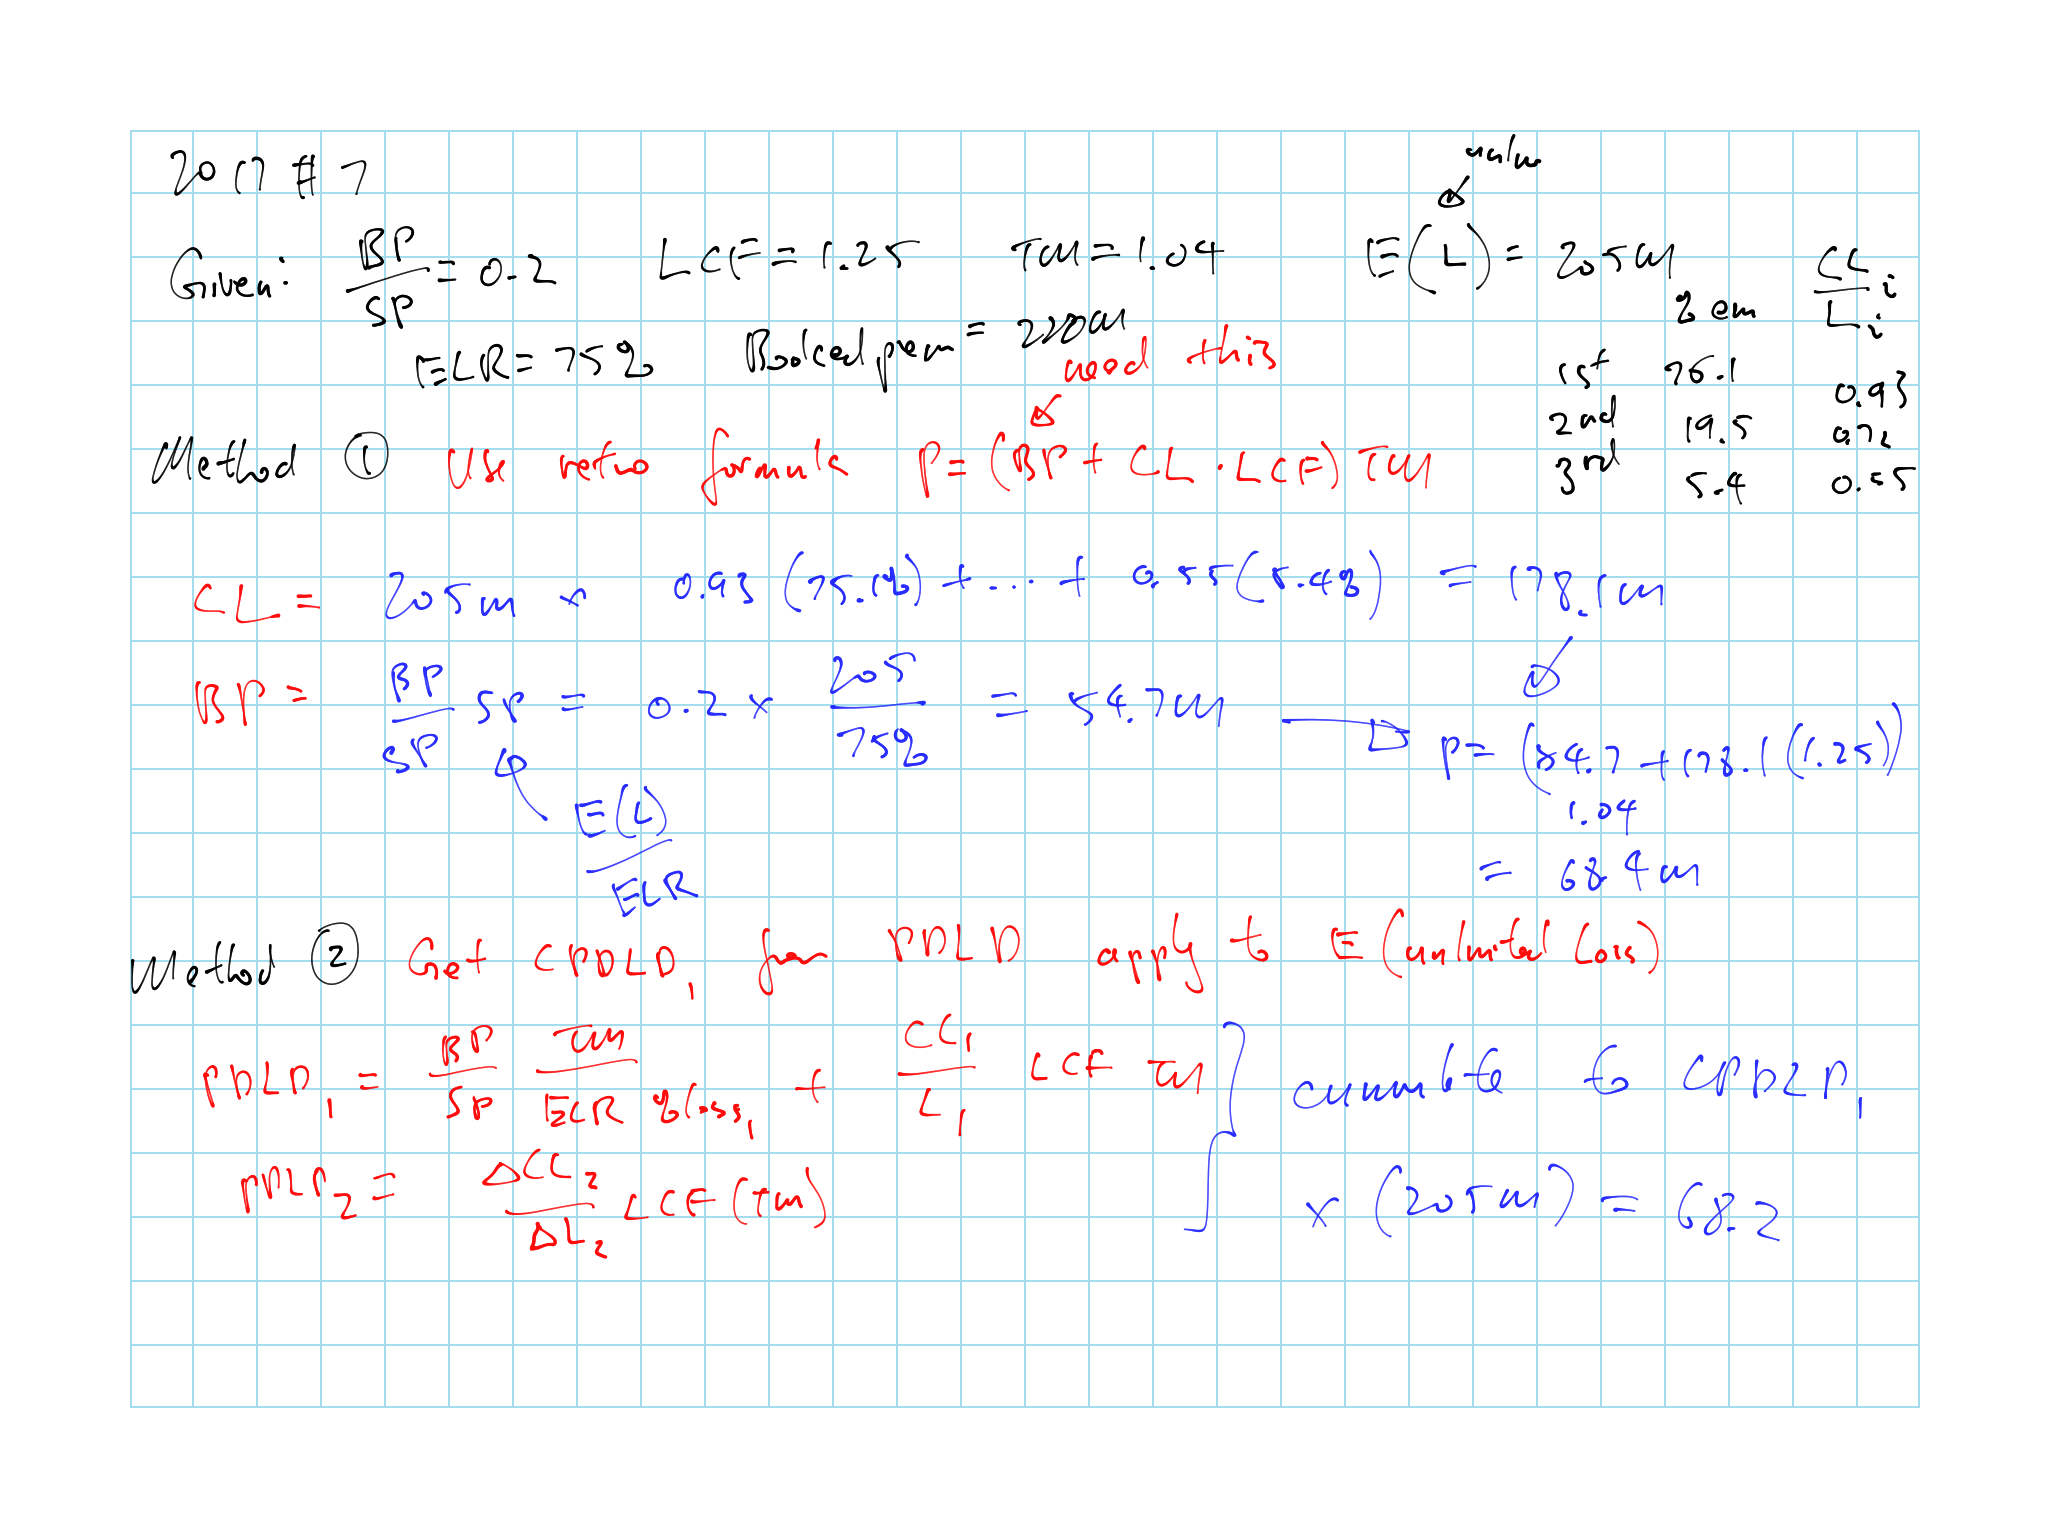 2017 # 7
unlim
Given: BP/SP = 0.2 LCF = 1.25 TM = 1.04 E(L) = 205m
ELR = 75% Booked prem = 220m
% em CL_i/L_i
1st 76.1 0.93
2nd 19.5 0.72
3rd 5.4 0.55
need this
Method ① Use retro formula P = (BP + CL · LCF) TM
CL = 205m × 0.93 (75.1%) + ... + 0.55 (5.4%) = 178.1m
BP = BP/SP SP = 0.2 × 205/75% = 54.7m → P = (54.7 + 178.1 (1.25))
1.04
E(L)/ELR
= 68.4m
Method ② Get CPDLD₁ from PDLD apply to E (unlimited Loss)
PDLD₁ = BP/SP TM/ELR %loss₁ + CL₁/L₁ LCF TM } cumulate to CPDLD₁
PDLD₂ = ΔCL₂/ΔL₂ LCF (TM) × (205m) = 68.2